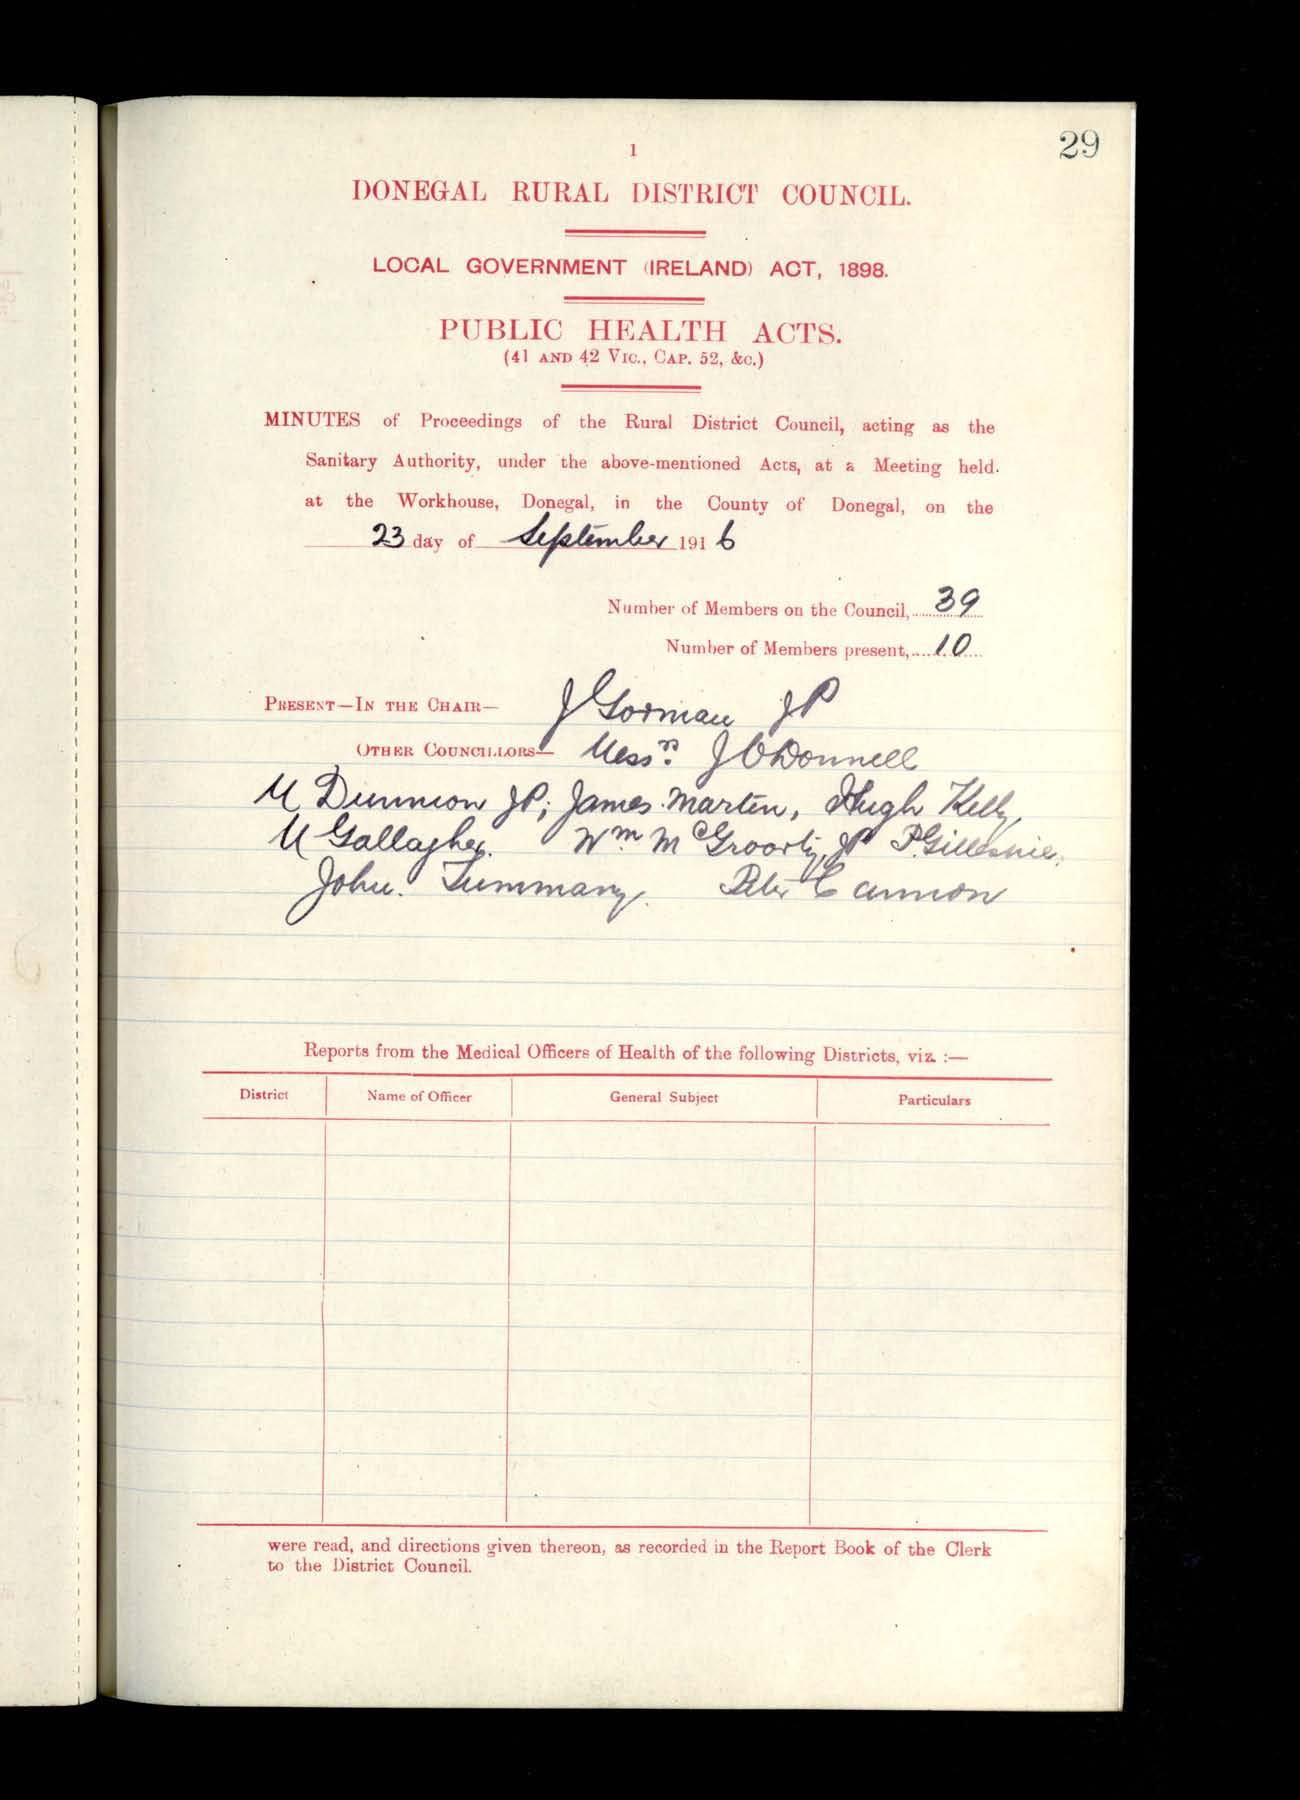 29
1
DONEGAL RURAL DISTRICT COUNCIL.
LOCAL GOVERNMENT (IRELAND) ACT, 1898.
PUBLIC HEALTH ACTS.
(41 AND 42 VIC., CAP. 52, &C.)
MINUTES of Proceedings of the Rural District Council, acting as the
Sanitary Authority, under the above-mentioned Acts, at a Meeting held
at the Workhouse, Donegal, in the County of Donegal, on the
23 day of September 1916
Number of Members on the Council, 39
Number of Members present, 10
PRESENT—IN THE CHAIR— J Gorman JP
OTHER COUNCILLORS— Messrs. J O'Donnell
M Dunnion JP; James Martin, Hugh Kelly,
M Gallagher. Wm McGroorty, JP P. Gillespie.
John. Timmany. Peter Cannon
Reports from the Medical Officers of Health of the following Districts, viz. :—
District Name of Officer General Subject Particulars
were read, and directions given thereon, as recorded in the Report Book of the Clerk
to the District Council.